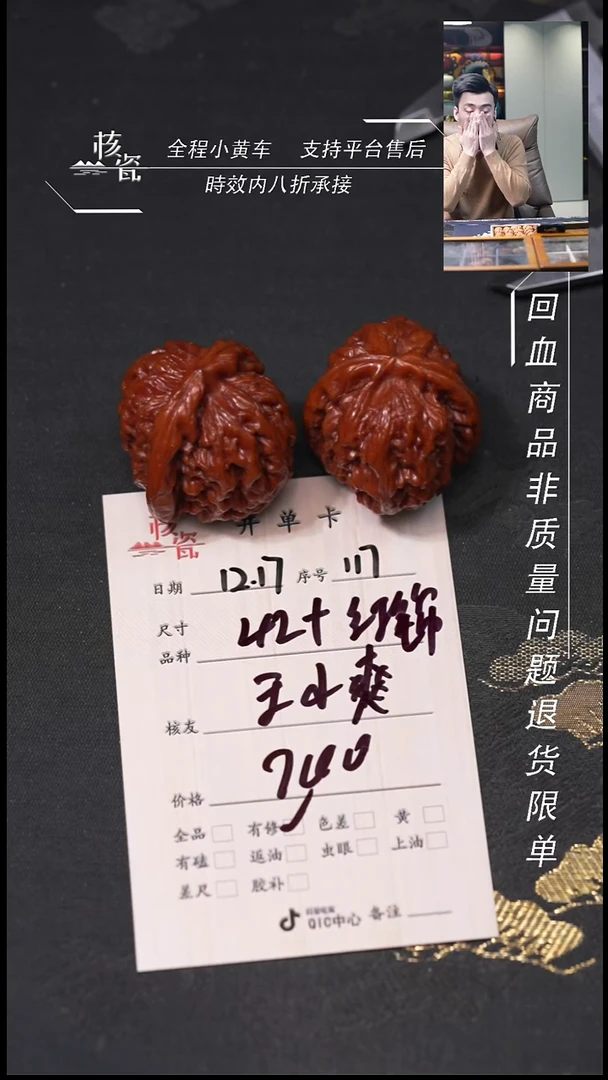 核瓷
全程小黄车 支持平台售后
時效内八折承接
回血商品非质量问题退货限单
核瓷
开单卡
日期 12.17 序号 117
尺寸 42+
品种
核友 王小爽
价格 740
全品 有修 色差 黄
有磕 返油 虫眼 上油
差尺 胶补
QIC中心 备注